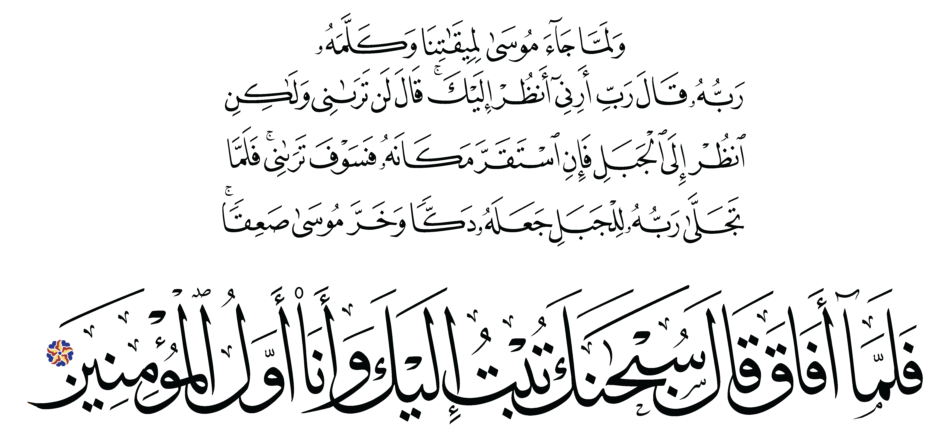 وَلَمَّا جَآءَ مُوسَىٰ لِمِيقَٰتِنَا وَكَلَّمَهُۥ
رَبُّهُۥ قَالَ رَبِّ أَرِنِىٓ أَنظُرْ إِلَيْكَ ۚ قَالَ لَن تَرَىٰنِى وَلَٰكِنِ
ٱنظُرْ إِلَى ٱلْجَبَلِ فَإِنِ ٱسْتَقَرَّ مَكَانَهُۥ فَسَوْفَ تَرَىٰنِى ۚ فَلَمَّا
تَجَلَّىٰ رَبُّهُۥ لِلْجَبَلِ جَعَلَهُۥ دَكًّا وَخَرَّ مُوسَىٰ صَعِقًا ۚ
فَلَمَّآ أَفَاقَ قَالَ سُبْحَٰنَكَ تُبْتُ إِلَيْكَ وَأَنَا۠ أَوَّلُ ٱلْمُؤْمِنِينَ